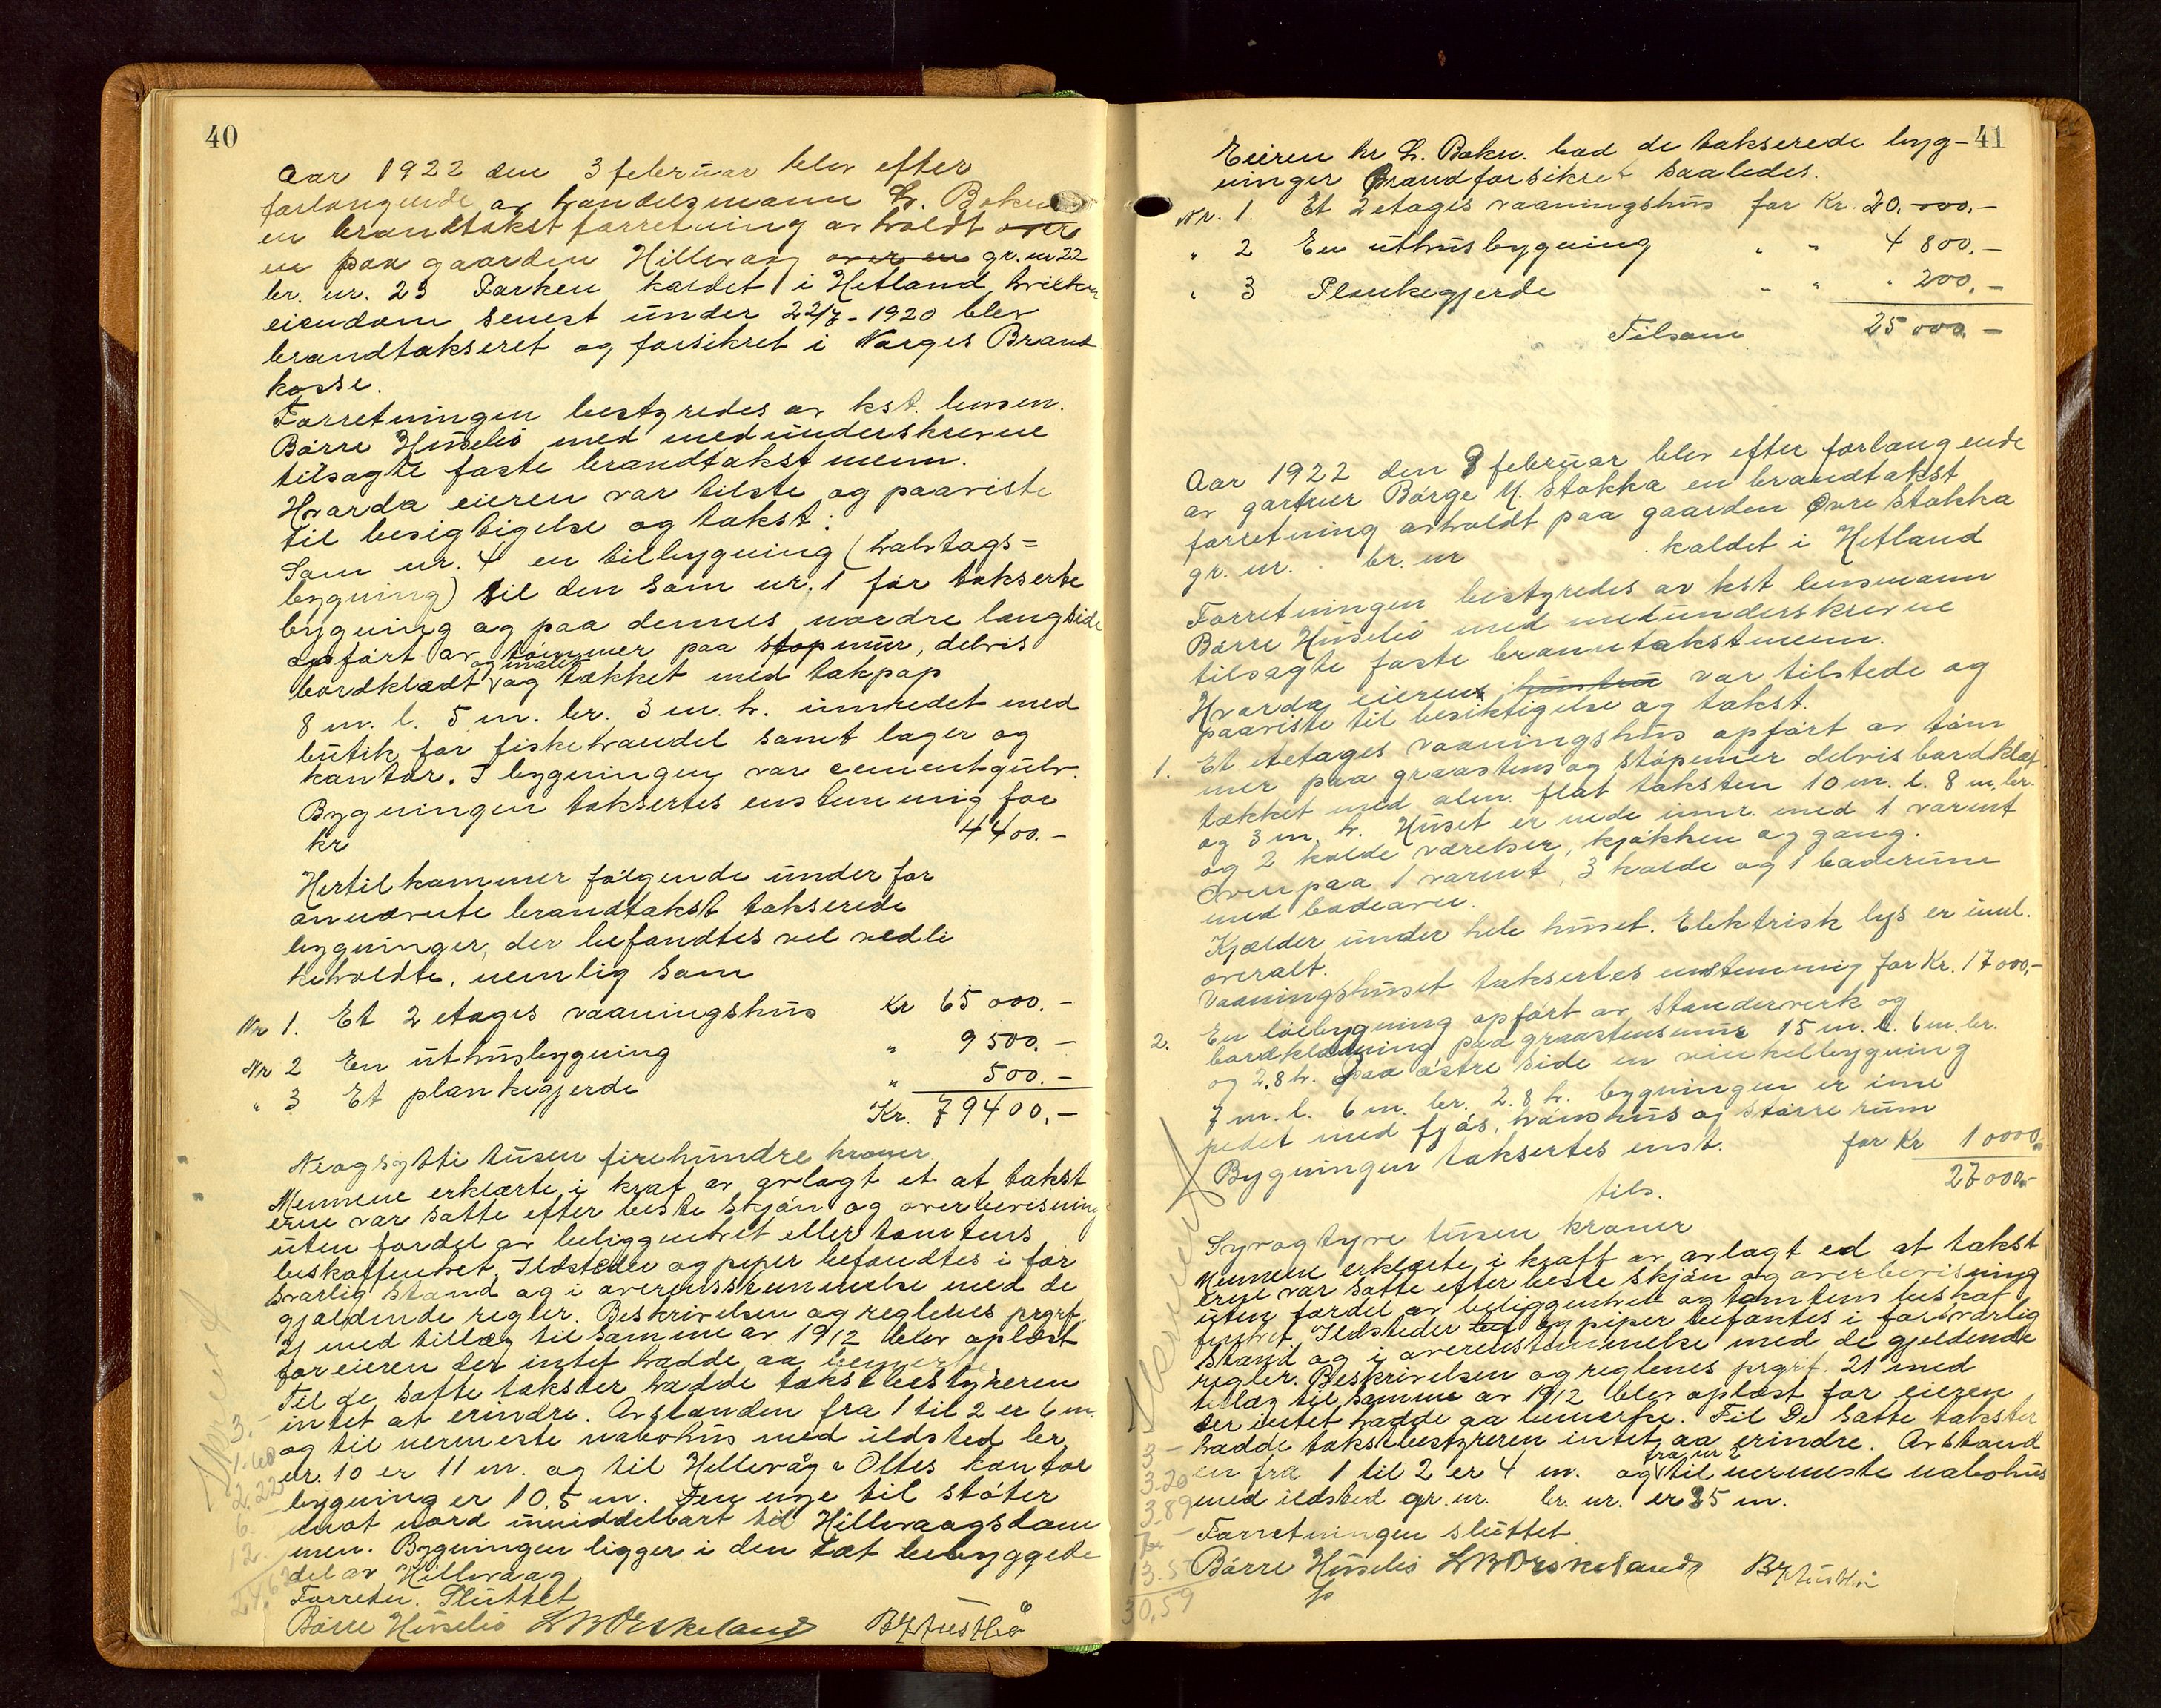 40
Aar 1922 den 3 februar blev efter
forlangende av handelsmann L. Bokn
en brandtakst forretning avholdt over
en paa gaarden Hillevaag over en gr. nr 22
br. nr. 23 Parken kaldet i Hetland, hvilken
eiendom senest under 22/7-1920 blev
brandtakseret og forsikret i Norges Brand
kasse.
Forretningen bestyredes av kst. lensm.
Börre Husebö med medunderskrevne
tilsagte faste brandtakstmenn.
Hvorda eieren var tilste og paaviste
til besigtigelse og takst:
Som nr. 4 en tilbygning (halvtags=
bygning) til den som nr. 1 för takserte
bygning og paa dennes nordre langside
opfört av tömmer paa stöpmur, delvis
bordklædt og malet og tækket med takpap
8 m. l. 5 m. br. 3 m. h. innredet med
butik for fiskehandel samt lager og
kontor. I bygningen var cementgulv.
Bygningen taksertes enstemmig for
kr 4400.-
Hertil kommer fölgende under for
annævnte brandtakst takserede
bygninger, der befandtes vel vedli
keholdte, nemlig som
Nr 1. Et 2 etages vaaningshus Kr 65 000.-
Nr 2 En uthusbygning " 9 500.-
" 3 Et plankegjerde " 500.-
Kr. 79400,-
Niogsytti tusen firehundre kroner.
Mennene erklærte i kraf av avlagt et at takst
erne var satte efter beste skjön og overbevisning
uten fordel av beliggenhet eller tomtens
beskaffenhet, Ildsteder og piper befandtes i for
svarlig stand og i overensstemmelse med de
gjældende regler. Beskrivelsen og reglenes prgrf.
21 med tillæg til samme av 1912 blev oplæst
for eieren der intet hadde aa bemerke.
Til de satte takster hadde takstbestyreren
intet at erindre. Avstanden fra 1 til 2 er 6 m.
og til nermeste nabohus med ildsted br.
nr. 10 er 11 m. og til Hillevåg & Oltes kontor
bygning er 10,5 m. Den nye til stöter
mot nord umiddelbart til Hillevaagsdam
men. Bygningen ligger i den tæt bebyggede
del av Hillevaag
Forretn. Sluttet
Börre Husebö L B Orskeland
3.-
1.60
2.22
6.-
12.-
24.62
41
Eieren hr L. Bokn. bad de takserede byg-
ninger Brandforsikret saaledes.
Nr. 1. Et 2 etages vaaningshus for Kr. 20.000.-
" 2 En uthusbygning " " 4 800.-
" 3 Plankegjerde " " " 200.-
Tilsam 25 000.-
Aar 1922 den 8 februar blev efter forlangende
av gartner Börge M. Stokka en brandtakst
forretning avholdt paa gaarden Övre Stokka
gr. nr. br. nr kaldet i Hetland
Forretningen bestyredes av kst lensmann
Börre Husebö med medunderskrevne
tilsagte faste branntakstmenn.
Hvorda eieren hustru var tilstede og
paaviste til besiktigelse og takst.
1. Et etetages vaaningshus opfört av töm
mer paa graastens og stöpemur delvis bordklæt
tækket med alm. flat taksten 10 m. l. 8 m. br.
og 3 m. h. Huset er nede innr. med 1 varmt
og 2 kolde værelser, kjökken og gang.
Ovenpaa 1 varmt, 3 kolde og 1 baderum
med badeovn.
Kjælder under hele huset. Elektrisk lys er innl.
overalt.
Vaaningshuset taksertes enstemmig for Kr. 17 000,-
2. En löebygning opfört av standerverk og
bordklædning paa graastensmur 15 m. l. 6 m. br.
og 2,8 h. Paa östre side en vinkelbygning
7 m. l. 6 m. br. 2.8 h. bygningen er inne
redet med fjös, hönshus og större rum
Bygningen taksertes enst. for Kr 10000.
tils. 27000.-
Syvogtyve tusen kroner
Mennene erklærte i kraft av avlagt ed at takst
erne var satte efter beste skjön og overbevisning
uten fordel av beliggenhet og tomtens beskaf
fenhet. Ildsteder og piper befantes i forsvarlig
stand og i overenstemmelse med de gjeldende
regler. Beskrivelsen og reglenes prgrf. 21 med
tillæg til samme av 1912 blev oplæst for eieren
der intet hadde aa bemerke. Til De satte takster
hadde takstbestyreren intet aa erindre. Avstand
en fra 1 til 2 er 4 m. og fra nr 2 til nermeste nabohus
med ildsted gr. nr. br. nr. er 35 m.
Forretningen sluttet
Börre Husebö L B Orskeland
3-
3.20
3.89
13.50
30,59